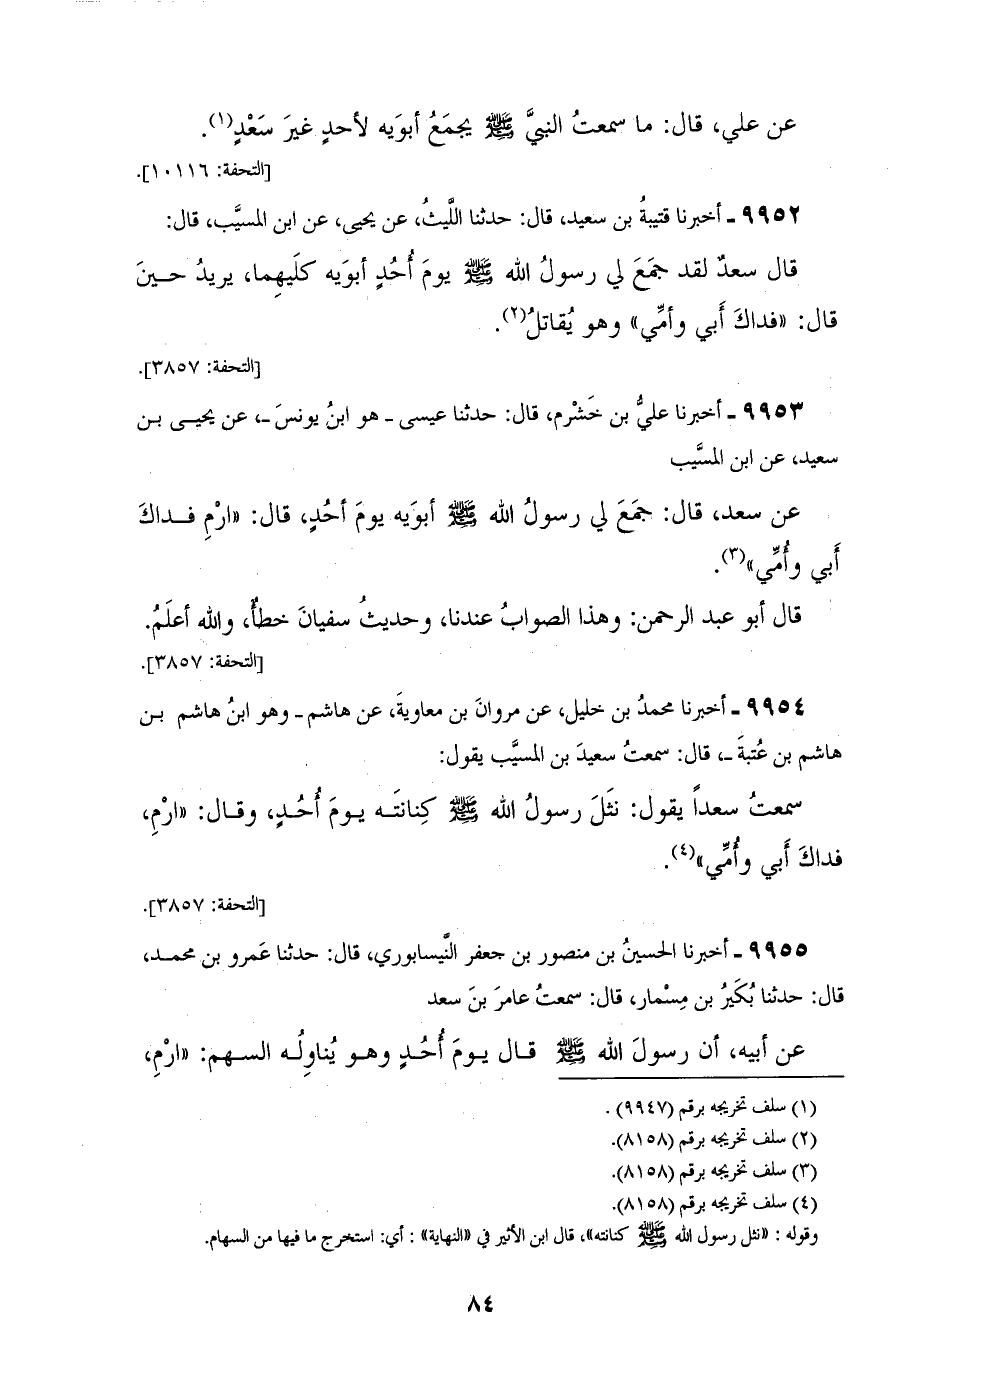 عن علي، قال: ما سمعتُ النبيَّ ﷺ يجمَعُ أبوَيه لأحدٍ غيرَ سَعْدٍ(١).
[التحفة: ١٠١١٦].
٩٩٥٢ ـ أخبرنا قتيبةُ بن سعيد، قال: حدثنا اللَّيثُ، عن يحيى، عن ابن المسيَّب، قال:
قال سعدٌ لقد جمَعَ لي رسولُ الله ﷺ يومَ أُحُدٍ أبوَيه كلَيهِما، يريدُ حـينَ
قال: «فداكَ أَبي وأمِّي» وهو يُقاتلُ(٢).
[التحفة: ٣٨٥٧].
٩٩٥٣ ـ أخبرنا عليُّ بن خَشْرم، قال: حدثنا عيسى ـ هو ابنُ يونسَ ـ، عن يحيـى بـن
سعيد، عن ابن المسَّيب
عن سعد، قال: جمَعَ لي رسولُ الله ﷺ أبوَيه يومَ أحُدٍ، قال: «ارْمِ فـداكَ
أَبي وأُمِّي»(٣).
قال أبو عبد الرحمن: وهذا الصوابُ عندنا، وحديثُ سفيانَ خطأٌ، والله أعلَمُ.
[التحفة: ٣٨٥٧].
٩٩٥٤ ـ أخبرنا محمدُ بن خليل، عن مروانَ بن معاويةَ، عن هاشم ـ وهو ابنُ هاشم بـن
هاشم بن عُتبةَ ـ، قال: سمعتُ سعيدَ بن المسيَّب يقول:
سمعتُ سعداً يقول: نَثَلَ رسولُ الله ﷺ كِنانَتَـه يـومَ أُحُـدٍ، وقـال: «ارْمِ،
فداكَ أَبي وأُمِّي»(٤).
[التحفة: ٣٨٥٧].
٩٩٥٥ ـ أخبرنا الحسينُ بن منصور بن جعفر النَّيسابوري، قال: حدثنا عَمرو بن محمـد،
قال: حدثنا بُكَيرُ بن مِسْمار، قال: سمعتُ عامرَ بنَ سعد
عن أبيه، أن رسولَ الله ﷺ قـال يـومَ أُحُـدٍ وهـو يُناوِلُـه السـهم: «ارْمِ،
(١) سلف تخريجه برقم (٩٩٤٧) .
(٢) سلف تخريجه برقم (٨١٥٨).
(٣) سلف تخريجه برقم (٨١٥٨).
(٤) سلف تخريجه برقم (٨١٥٨).
وقوله : «نثل رسول الله ﷺ كنانته»، قال ابن الأثير في «النهاية» : أي: استخرج ما فيها من السهام.
٨٤